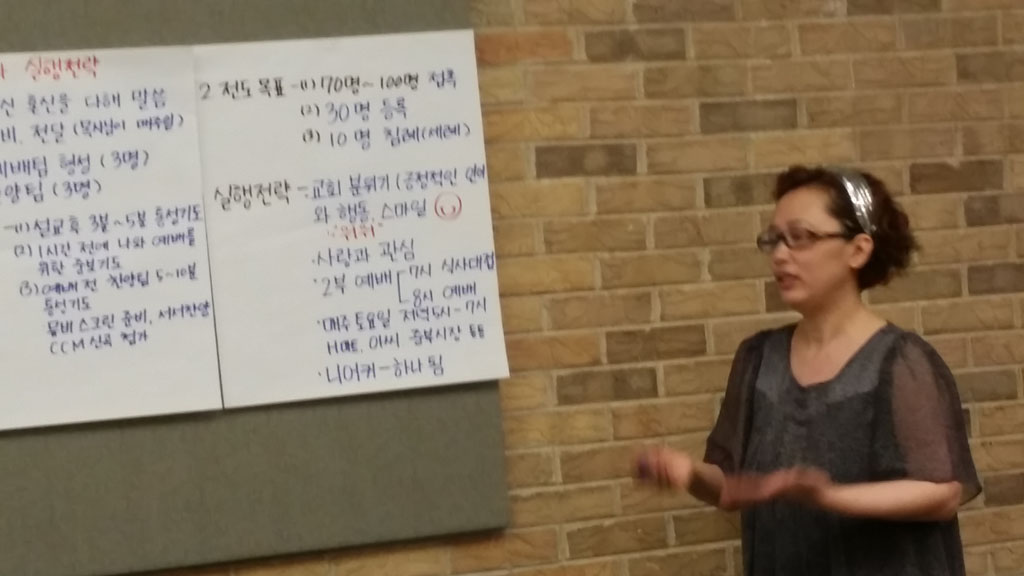 실행전략
신 혼신을 다해 말씀
비, 전달 (목사님이 매주일)
예배팀 형성 (3명)
찬양팀 (3명)
-(1) 설교후 3분~5분 통성기도
(2) 1시간 전에 나와 예배를
위한 중보기도
(3) 예배 전 찬양팀 5~10분
통성기도
몰비 스크린 준비, 서서찬양
CCM 신곡 첨가
2 전도목표 -(1) 70명~100명 접촉
(2) 30명 등록
(3) 10명 침례(세례)
실행전략 - 교회 분위기 (긍정적인 언어
와 행동, 스마일
"위위"
·사랑과 관심
·2부 예배 [7시 식사대접
8시 예배
·매주 토요일 저녁 5시-7시
중부시장 등등
·니어커-하나 됨